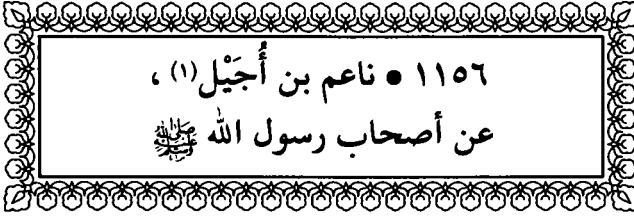 ١١٥٦ ● ناعم بن أُجَيْل(١) ،
عن أصحاب رسول الله ﷺ